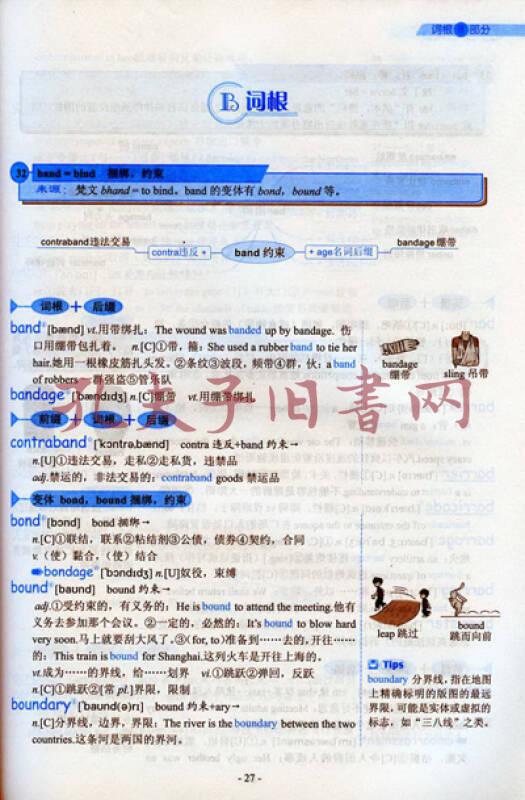 词根 部分
B 词根
32 band = bind 捆绑，约束
来源：梵文 bhand = to bind。band 的变体有 bond，bound 等。
contraband违法交易
contra违反 +
band 约束
+ age名词后缀
bandage 绷带
词根 + 后缀
band [bænd] vt.用带绑扎：The wound was banded up by bandage. 伤
口用绷带包扎着。 n.[C]①带，箍：She used a rubber band to tie her
hair.她用一根橡皮筋扎头发。②条纹③波段，频带④群，伙：a band
of robbers 一群强盗⑤管乐队
bandage ['bændɪdʒ] n.[C]绷带 vt.用绷带绑扎
bandage
绷带
sling 吊带
前缀 + 词根 + 后缀
contraband ['kɔntrəˌbænd] contra 违反+band 约束→
n.[U]①违法交易，走私②走私货，违禁品
adj.禁运的，非法交易的：contraband goods 禁运品
变体 bond，bound 捆绑，约束
bond [bɔnd] bond 捆绑→
n.[C]①联结，联系②粘结剂③公债，债券④契约，合同
v.（使）黏合，（使）结合
bondage ['bɔndɪdʒ] n.[U]奴役，束缚
bound [baund] bound 约束→
adj.①受约束的，有义务的：He is bound to attend the meeting.他有
义务去参加那个会议。②一定的，必然的：It's bound to blow hard
very soon.马上就要刮大风了。③(for, to)准备到……去的，开往……
的：This train is bound for Shanghai.这列火车是开往上海的。
vt.成为……的界线，给……划界 vi.①跳跃②弹回，反跃
n.[C]①跳跃②[常 pl.]界限，限制
boundary ['baund(ə)rɪ] bound 约束+ary→
n.[C]分界线，边界，界限：The river is the boundary between the two
countries.这条河是两国的界河。
leap 跳过
bound
跳而向前
Tips
boundary 分界线，指在地图
上精确标明的版图的最远
界限，可能是实体或虚拟的
标志，如“三八线”之类。
孔夫子旧书网
- 27 -